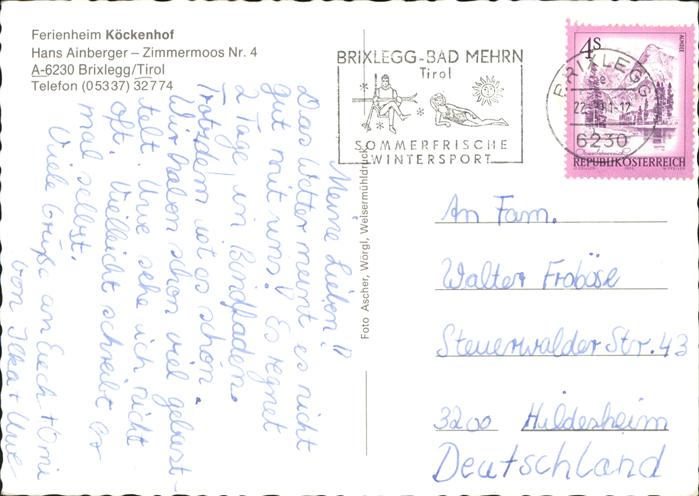 Ferienheim Köckenhof
Hans Ainberger – Zimmermoos Nr. 4
A-6230 Brixlegg/Tirol
Telefon (05337) 32774
BRIXLEGG-BAD MEHRN
Tirol
SOMMERFRISCHE
WINTERSPORT
BRIXLEGG
6230
4S
ALMSEE
REPUBLIK ÖSTERREICH
Meine Lieben!
Das Wetter meint es nicht
gut mit uns. Es regnet
2 Tage in Bindfäden.
Trotzdem ist es schön.
Wir haben schon viel gebast-
telt. Uwe sehe ich nicht
oft. Vielleicht schreibt er
mal selbst.
Viele Grüße an Euch + Omi
von Ilka + Uwe
Foto Ascher, Wörgl, Weisermühldruck
An Fam.
Walter Froböse
Steuerwalder Str. 43
3200 Hildesheim
Deutschland